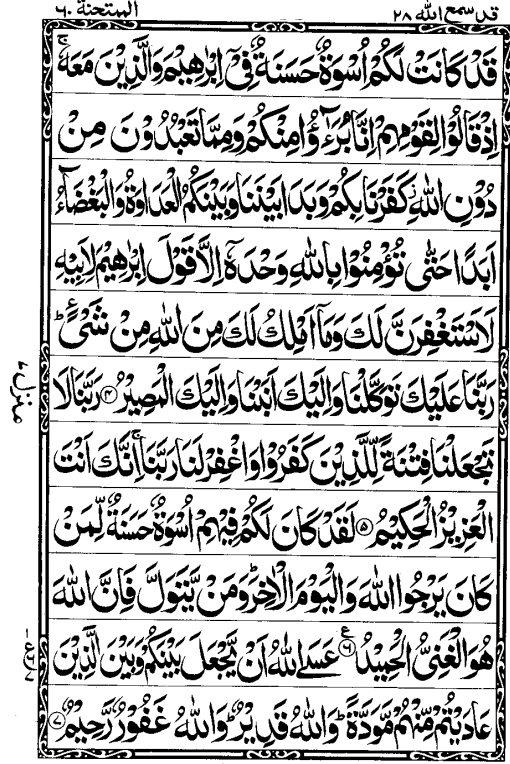 قد سمع الله ٢٨
الممتحنة ٦٠
قَدْ كَانَتْ لَكُمْ اُسْوَةٌ حَسَنَةٌ فِیْۤ اِبْرٰهِیْمَ وَالَّذِیْنَ مَعَهٗ ۚ
اِذْ قَالُوْا لِقَوْمِهِمْ اِنَّا بُرَءٰٓؤُا مِنْكُمْ وَمِمَّا تَعْبُدُوْنَ مِنْ
دُوْنِ اللّٰهِ ؗ كَفَرْنَا بِكُمْ وَبَدَا بَیْنَنَا وَبَیْنَكُمُ الْعَدَاوَةُ وَالْبَغْضَآءُ
اَبَدًا حَتّٰی تُؤْمِنُوْا بِاللّٰهِ وَحْدَهٗۤ اِلَّا قَوْلَ اِبْرٰهِیْمَ لِاَبِیْهِ
لَاَسْتَغْفِرَنَّ لَكَ وَمَاۤ اَمْلِكُ لَكَ مِنَ اللّٰهِ مِنْ شَیْءٍ ؕ
رَبَّنَا عَلَیْكَ تَوَكَّلْنَا وَاِلَیْكَ اَنَبْنَا وَاِلَیْكَ الْمَصِیْرُ ۴ رَبَّنَا لَا
تَجْعَلْنَا فِتْنَةً لِّلَّذِیْنَ كَفَرُوْا وَاغْفِرْ لَنَا رَبَّنَا ۚ اِنَّكَ اَنْتَ
الْعَزِیْزُ الْحَكِیْمُ ۵ لَقَدْ كَانَ لَكُمْ فِیْهِمْ اُسْوَةٌ حَسَنَةٌ لِّمَنْ
كَانَ یَرْجُوا اللّٰهَ وَالْیَوْمَ الْاٰخِرَ ؕ وَمَنْ یَّتَوَلَّ فَاِنَّ اللّٰهَ
هُوَ الْغَنِیُّ الْحَمِیْدُ ۶ ع عَسَی اللّٰهُ اَنْ یَّجْعَلَ بَیْنَكُمْ وَبَیْنَ الَّذِیْنَ
عَادَیْتُمْ مِّنْهُمْ مَّوَدَّةً ؕ وَاللّٰهُ قَدِیْرٌ ؕ وَاللّٰهُ غَفُوْرٌ رَّحِیْمٌ ۷
منزل ۷